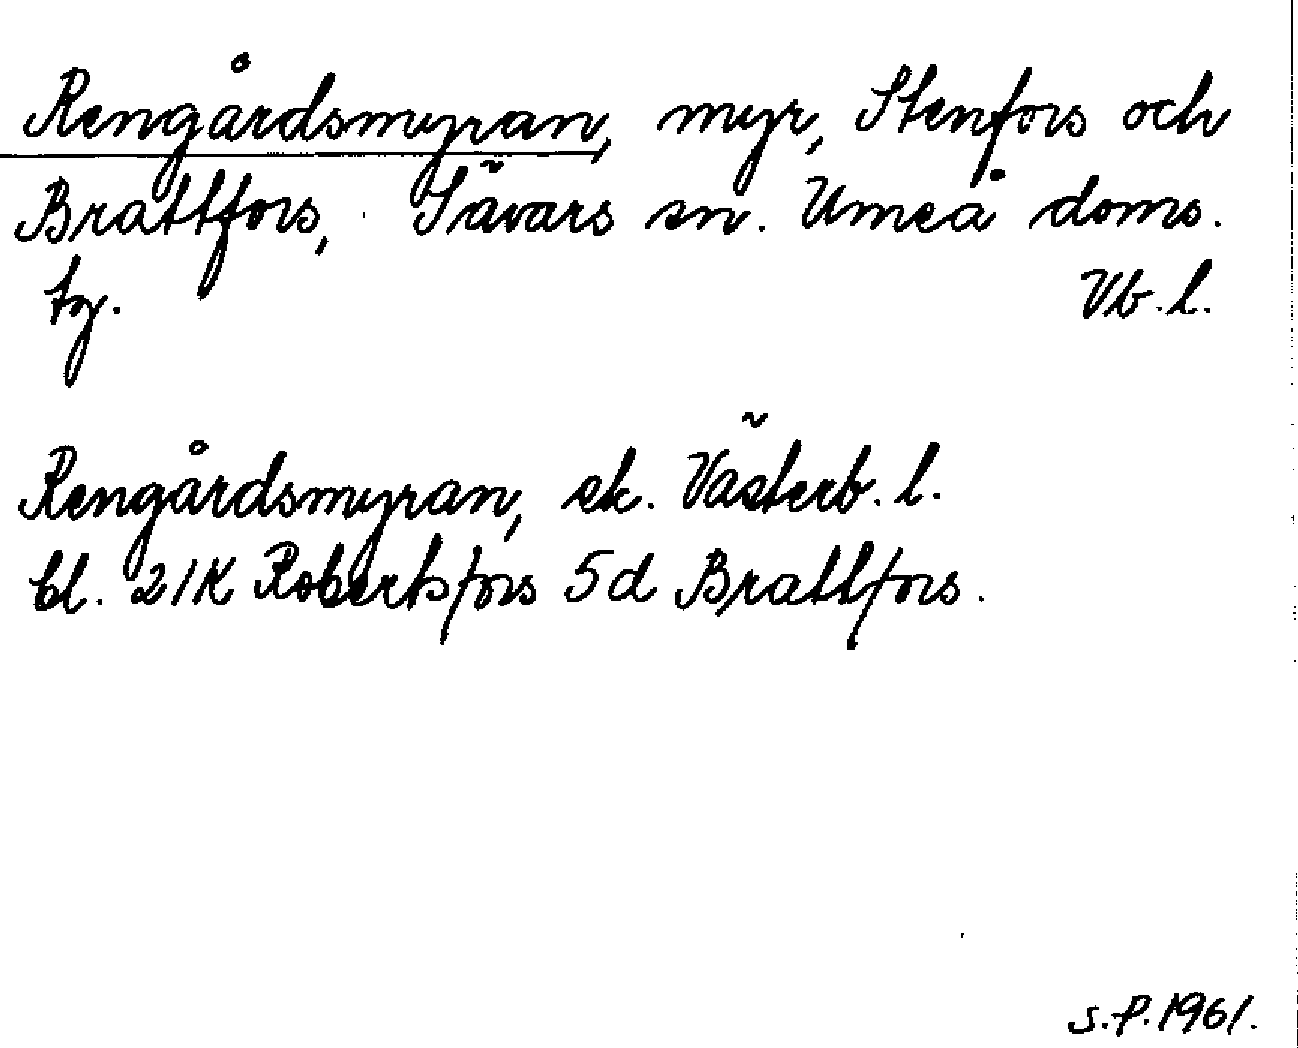 Rengårdsmyran, myr, Stenfors och
Brattfors, Sävars sn. Umeå doms.
tg. Vb.l.
Rengårdsmyran, ek. Västerb. l.
bl. 21K Robertsfors 5d Brattfors.
S.P. 1961.